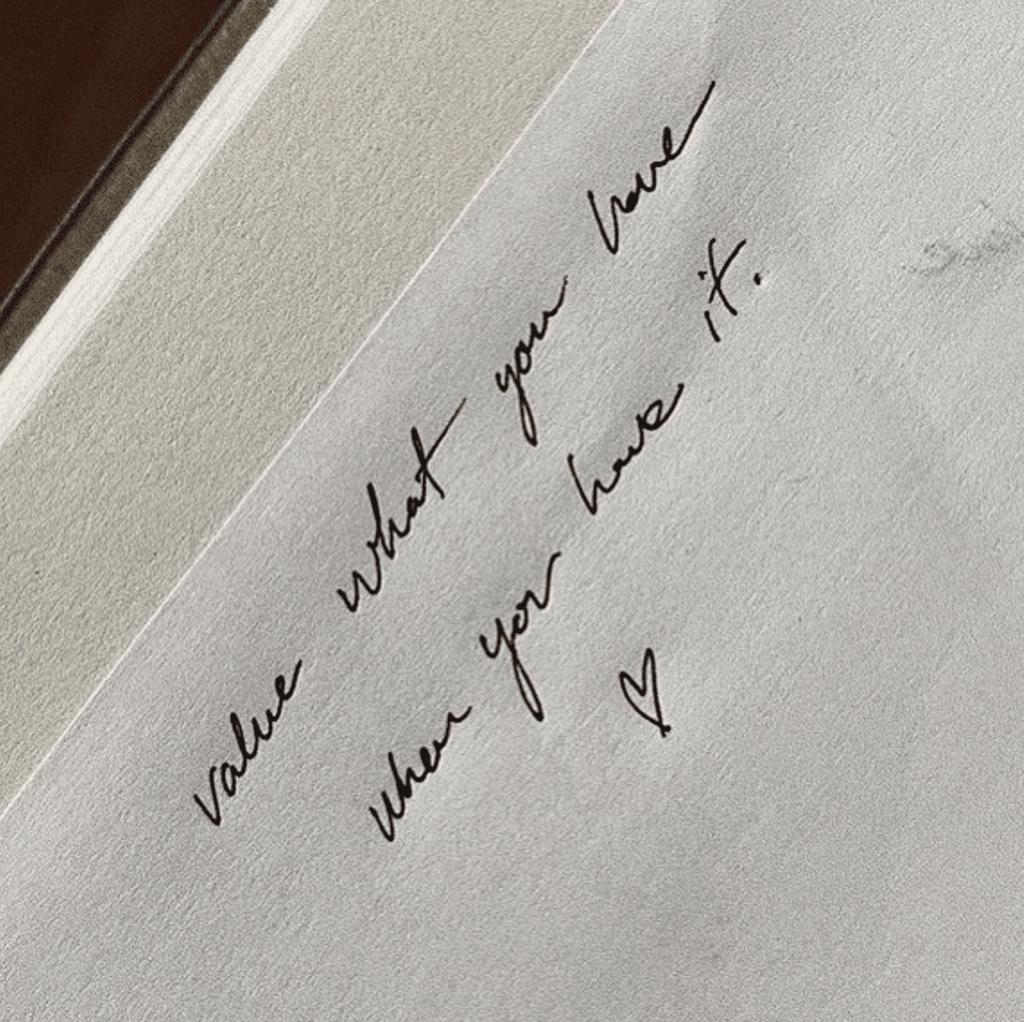 value what you have
when you have it.
♡